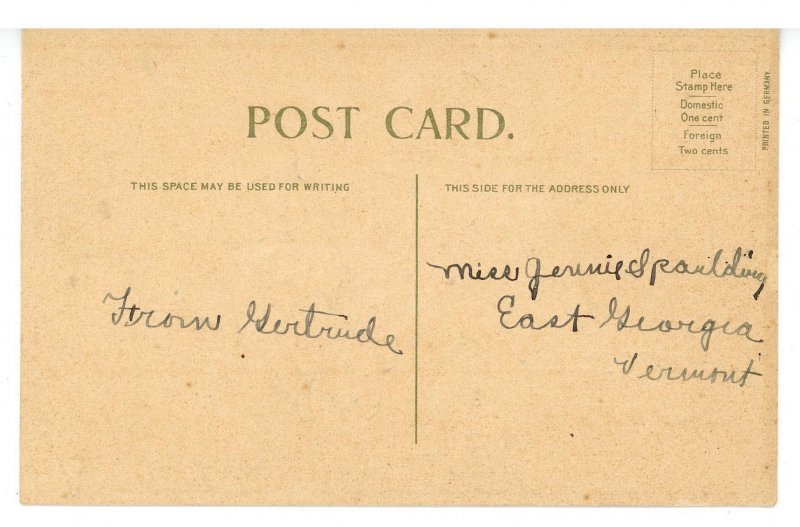 POST CARD.
Place
Stamp Here
Domestic
One cent
Foreign
Two cents
PRINTED IN GERMANY.
THIS SPACE MAY BE USED FOR WRITING
From Gertrude
THIS SIDE FOR THE ADDRESS ONLY
Miss Jennie Spaulding
East Georgia
Vermont